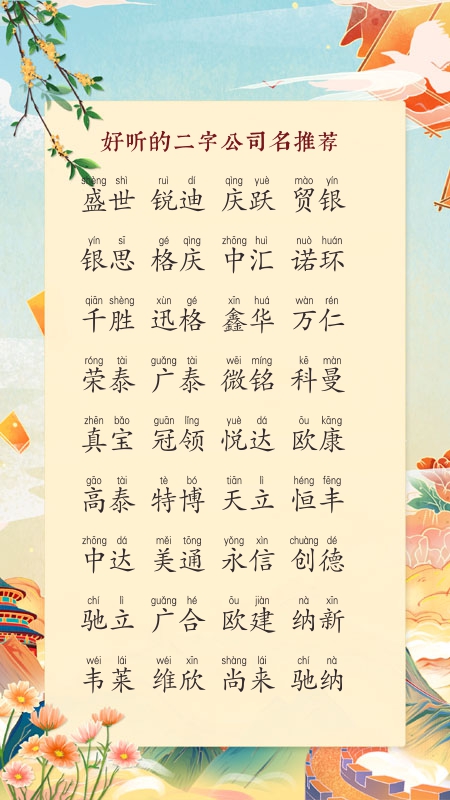 好听的二字公司名推荐
shèng shì ruì dí qìng yuè mào yín
盛世 锐迪 庆跃 贸银
yín sī gé qìng zhōng huì nuò huán
银思 格庆 中汇 诺环
qiān shèng xùn gé xīn huá wàn rén
千胜 迅格 鑫华 万仁
róng tài guǎng tài wēi míng kē màn
荣泰 广泰 微铭 科曼
zhēn bǎo guān lǐng yuè dá ōu kāng
真宝 冠领 悦达 欧康
gāo tài tè bó tiān lì héng fēng
高泰 特博 天立 恒丰
zhōng dá měi tōng yǒng xìn chuàng dé
中达 美通 永信 创德
chí lì guǎng hé ōu jiàn nà xīn
驰立 广合 欧建 纳新
wéi lái wéi xīn shàng lái chí nà
韦莱 维欣 尚来 驰纳